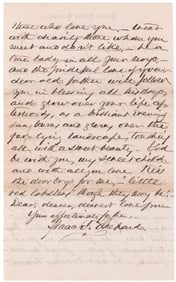 those who love you, – treat
with charity those whom you
meet and don't like, – be a
true lady in all your ways,
and the prideful love of your
dear old father will follow
you in blessing all his days,
and glow over your life of
as a brilliant evening
sun hangs and glows over the
far lying landscape, tinting
all with a sweet beauty. God
be with you, my sweet child
and with all you love. Kiss
the dear boys for me, "little
red lobsters" though they may be!
Dear, dearest, dearest love from
Your affectionate father,